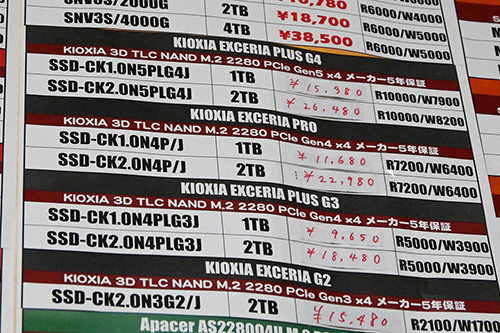 SNV3S/2000G 2TB R6000/W4000
SNV3S/4000G 2TB ¥18,700 R6000/W5000
4TB ¥38,500 R6000/W5000
KIOXIA EXCERIA PLUS G4
KIOXIA 3D TLC NAND M.2 2280 PCIe Gen5 x4 メーカー5年保証
SSD-CK1.0N5PLG4J 1TB ¥15,380 R10000/W7900
SSD-CK2.0N5PLG4J 2TB ¥26,480 R10000/W8200
KIOXIA EXCERIA PRO
KIOXIA 3D TLC NAND M.2 2280 PCIe Gen4 x4 メーカー5年保証
SSD-CK1.0N4P/J 1TB ¥11,680 R7200/W6400
SSD-CK2.0N4P/J 2TB ¥22,980 R7200/W6400
KIOXIA EXCERIA PLUS G3
KIOXIA 3D TLC NAND M.2 2280 PCIe Gen4 x4 メーカー5年保証
SSD-CK1.0N4PLG3J 1TB ¥9,650 R5000/W3900
SSD-CK2.0N4PLG3J 2TB ¥18,480 R5000/W3900
KIOXIA EXCERIA G2
KIOXIA 3D TLC NAND M.2 2280 PCIe Gen3 x4 メーカー5年保証
SSD-CK2.0N3G2/J 2TB ¥15,480 R2100/W1700
Apacer